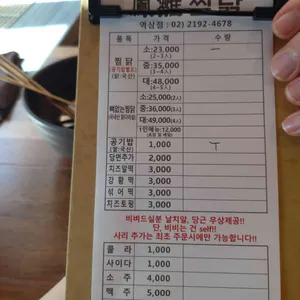 역삼점 : 02) 2192-4678
품목 가격 수량
찜닭
(공기밥별도)
(닭:국산)
소:23,000 ㅡ
(2~3人)
중:35,000
(3~4人)
대:48,000
(4~5人)
뼈없는찜닭
소:25,000(2人)
중:36,000(3人)
대:49,000(4人)
1인메뉴:12,000
공기밥
(쌀:국산)
1,000 ㅜ
당면추가 2,000
치즈알떡 3,000
강황떡 3,000
섞어떡 3,000
치즈토핑 3,000
비벼드실분 날치알, 당근 무상제공!!
단, 비비는 건 self!!
사리 추가는 최초 주문시에만 가능합니다!!
콜라 1,000
사이다 1,000
소주 4,000
맥주 5,000